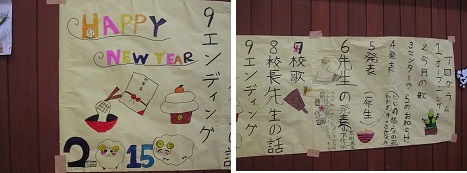 HAPPY
NEW YEAR
2015
9エンディング
プログラム
1オープニング
2今月の歌
3センターからのお知らせ
4発表
5発表(一年生)
6先生の演奏
7校歌
8校長先生の話
9エンディング